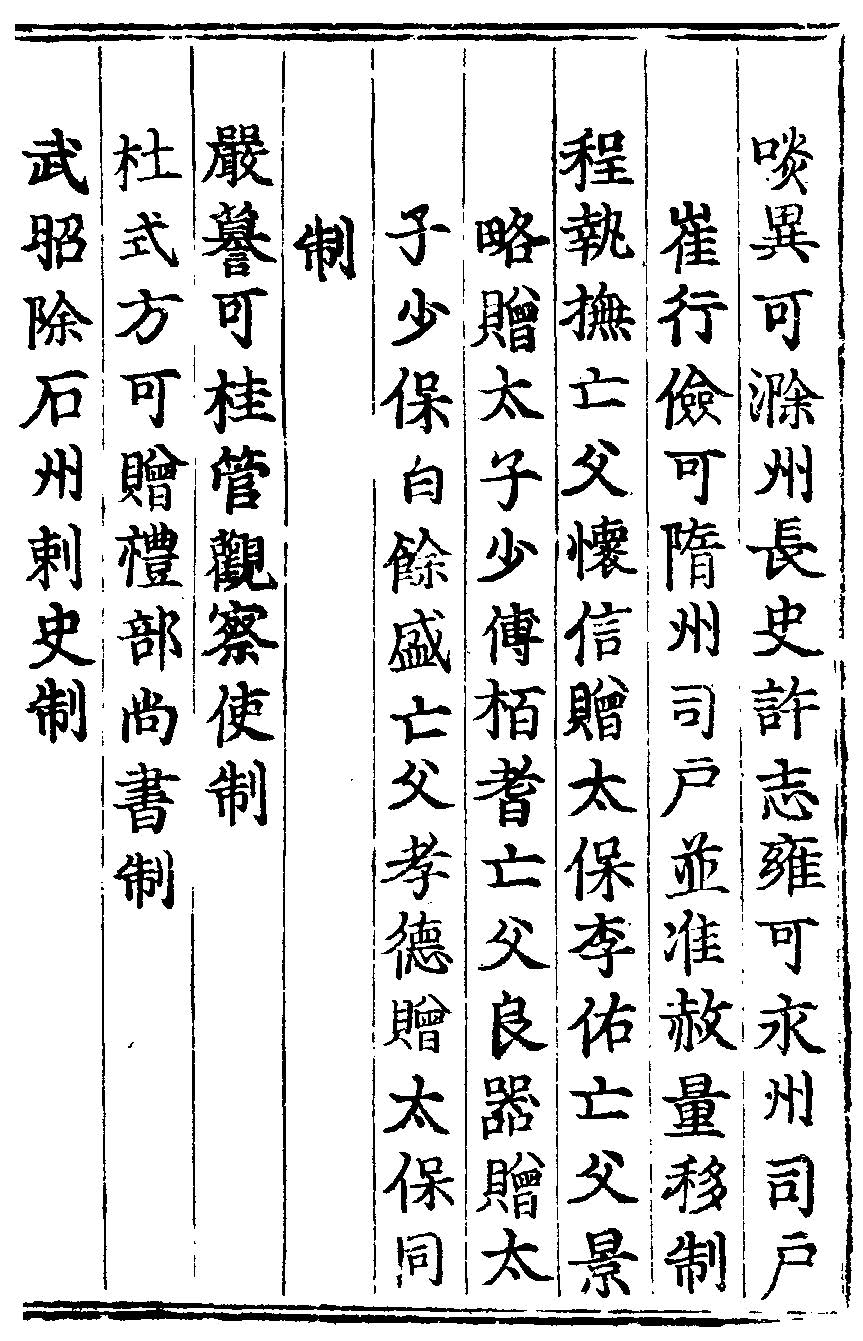 啖異可滁州長史許志雍可永州司戶
崔行儉可隋州司戶並准赦量移制
程執撫亡父懷信贈太保李佑亡父景
略贈太子少傅栢耆亡父良器贈太
子少保白餘盛亡父孝德贈太保同
制
嚴謩可桂管觀察使制
杜式方可贈禮部尚書制
武昭除石州刺史制